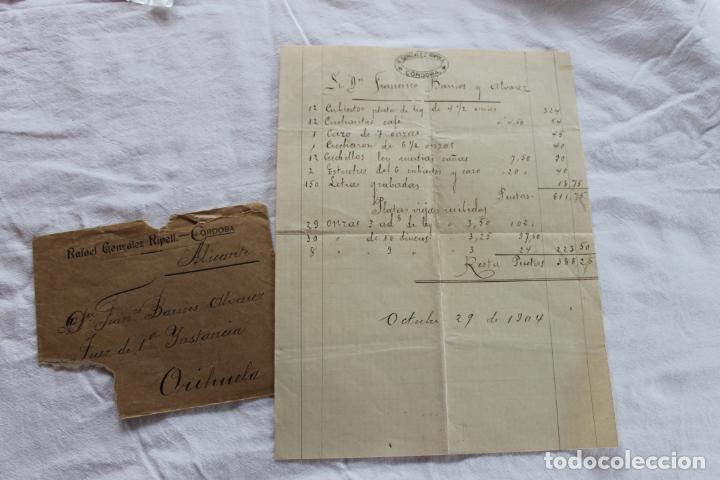 R. GONZALEZ RIPOLL
CORDOBA
Sr Dn Francisco Barrios y Alvarez
12 Cubiertos plata de ley de 4 1/2 onzas 324
12 Cucharitas café a 4,50 54
1 Cazo de 7 onzas 45
1 Cucharon de 6 1/2 onzas 40
12 Cuchillos ley medias cañas 7,50 90
2 Estuches de 6 cubiertos y cazo 20 40
150 Letras grabadas 18,75
Pesetas 611,75
Platas viejas recibidas
29 onzas de ley " 3,50 102
30 " de " 3,25 97,50
8 " 9 " 3 24 223,50
Resta Pesetas 388,25
Octubre 29 de 1904
Rafael González Ripoll.—CÓRDOBA
Alicante
Sr Dn Franco Barrios Alvarez
Juez de 1ª Ynstancia
Orihuela
todocoleccion
todocoleccion.net